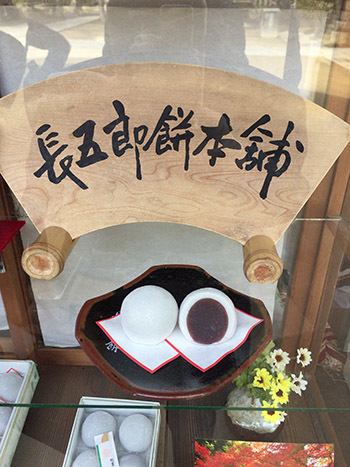 長五郎餅本舗